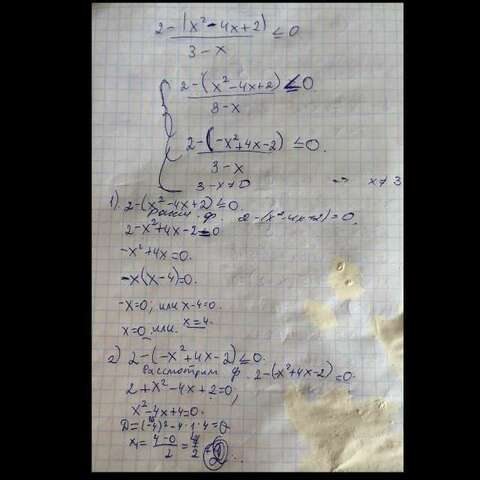 2-|x²-4x+2| ≤0
3-x
2-(x²-4x+2) ≤0
3-x
2-(-x²+4x-2) ≤0.
3-x
3-x≠0 => x≠3
1). 2-(x²-4x+2)≤0.
ф. 2-(x²-4x+2)=0,
2-x²+4x-2≤0
-x²+4x=0.
-x(x-4)=0.
-x=0, или x-4=0.
x=0 или x=4.
2) 2-(-x²+4x-2)≤0.
Рассмотрим ф. 2-(x²+4x-2)=0.
2+x²-4x+2=0,
x²-4x+4=0.
D=(-4)²-4·1·4=0
x₁= 4-0 = 4 = 2
2 2